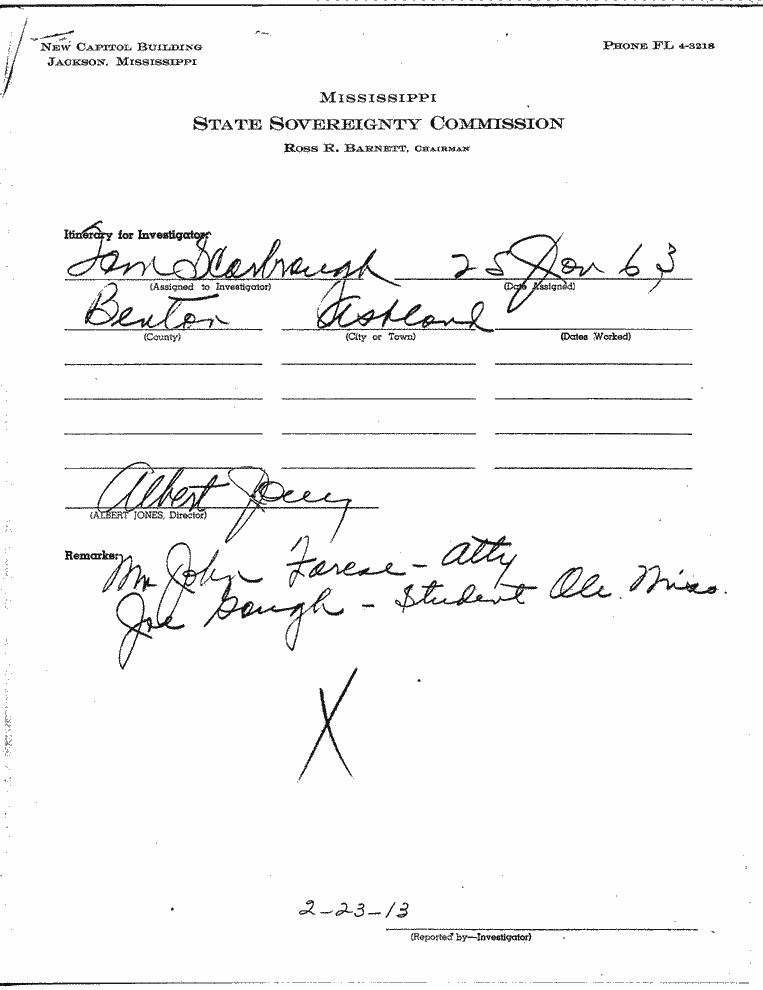 NEW CAPITOL BUILDING
JACKSON, MISSISSIPPI
PHONE FL 4-3218
MISSISSIPPI
STATE SOVEREIGNTY COMMISSION
ROSS R. BARNETT, CHAIRMAN
Itinerary for Investigator:
Tom Scarbrough 25 Jan 63
(Assigned to Investigator) (Date Assigned)
Benton Ashland
(County) (City or Town) (Dates Worked)
Albert Jones
(ALBERT JONES, Director)
Remarks:
Mr John Farese - Atty
Joe Gough - Student Ole Miss.
X
2-23-13
(Reported by—Investigator)